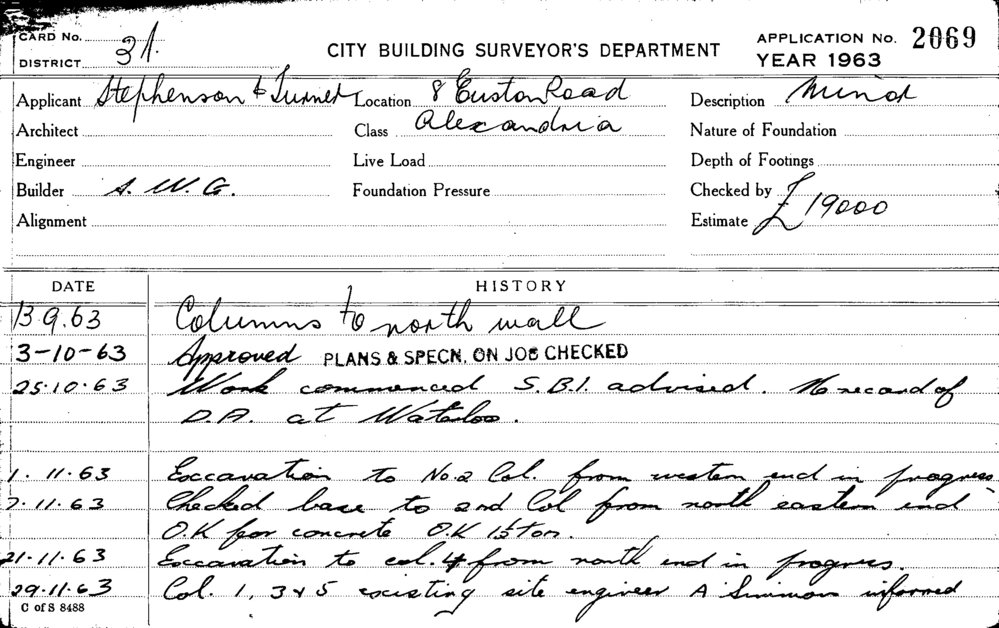 CARD No.
DISTRICT 31.
CITY BUILDING SURVEYOR'S DEPARTMENT
APPLICATION No. 2069
YEAR 1963
Applicant Stephenson & Turner Location 8 Euston Road Description Minor
Architect Class Alexandria Nature of Foundation
Engineer Live Load Depth of Footings
Builder A. W. G. Foundation Pressure Checked by
Alignment Estimate £19000
DATE HISTORY
13.9.63 Columns to north wall
3-10-63 Approved PLANS & SPECN. ON JOB CHECKED
25.10.63 Work commenced S.B.I. advised. No record of
D.A. at Waterloo.
1.11.63 Excavation to No.2 Col. from western end in progress
7.11.63 Checked base to 2nd Col from north eastern end
O.K for concrete O.K 1½ton.
21.11.63 Excavation to col. 4 from north end in progress.
29.11.63 Col. 1, 3 & 5 existing site engineer A Simmons informed
C of S 8488